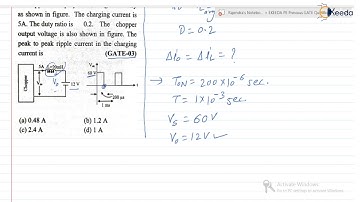 as shown in figure. The charging current is
5A. The duty ratio is 0.2. The chopper
output voltage is also shown in figure. The
peak to peak ripple current in the charging
current is (GATE-03)
Chopper
5A
L=20mH
V₀
12 V
60 V
200 μs
1 ms
t
(a) 0.48 A (b) 1.2 A
(c) 2.4 A (d) 1 A
D = 0.2
Δi₀ = Δi_L = ?
→ T_ON = 200×10⁻⁶ sec.
T = 1×10⁻³ sec.
V_s = 60V
V₀ = 12V ✓
Activate Windows